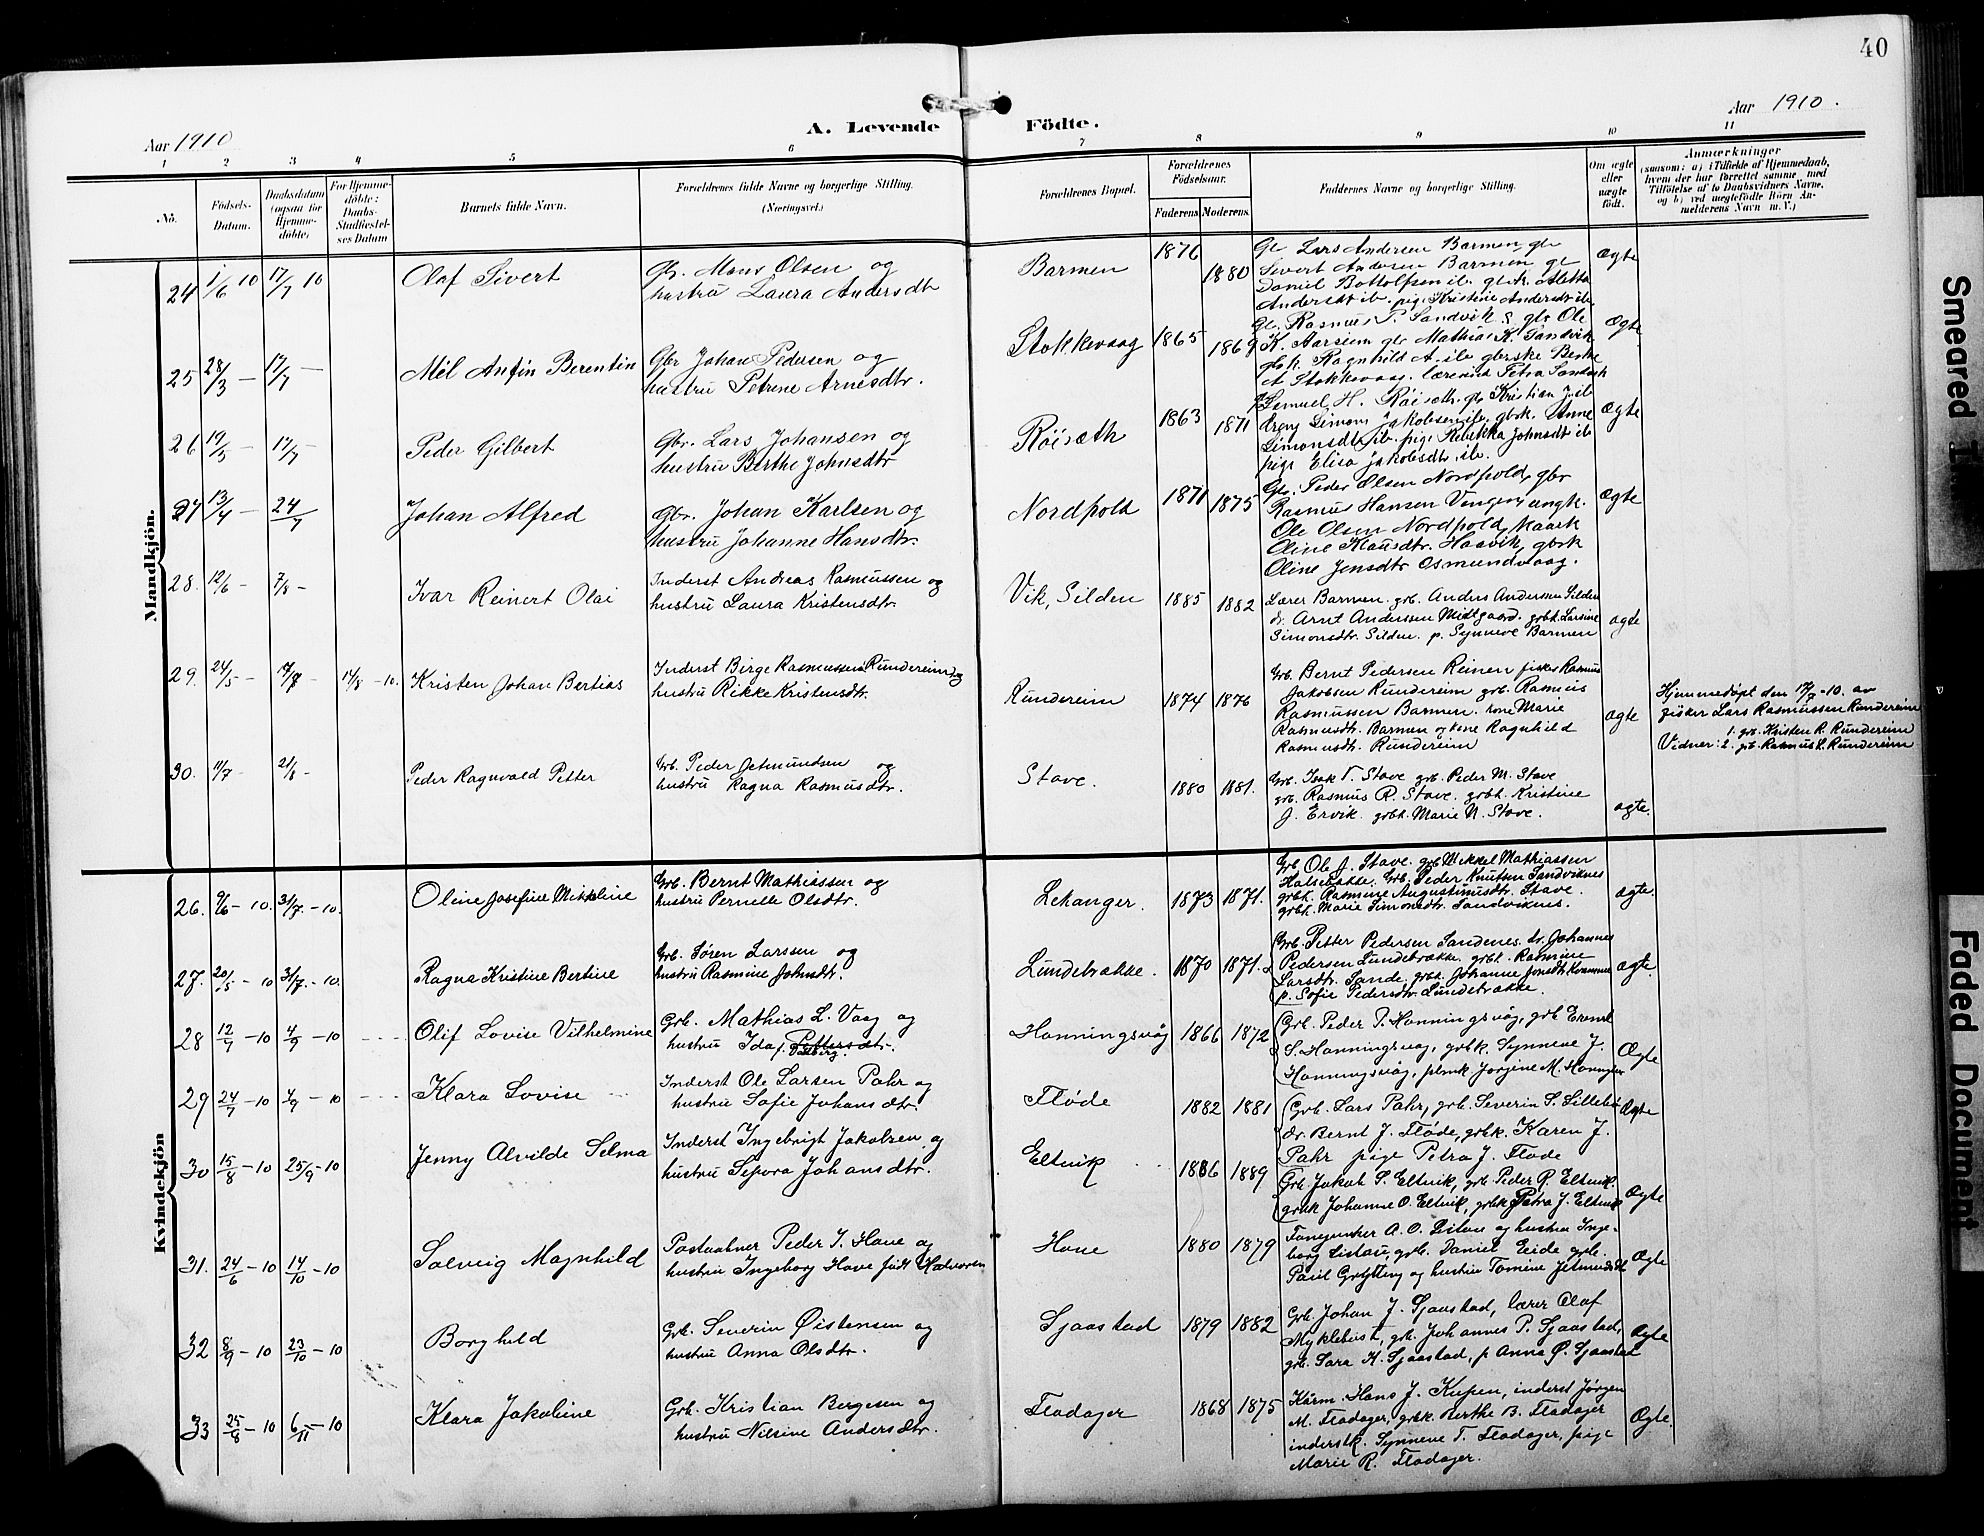 40
Aar 1910
A. Levende Födte.
Aar 1910.
1 2 3 4 5 6 7 8 9 10 11
No.
Födsels-
Datum.
Daabsdatum
(ogsaa for
Hjemme-
döbte)
For Hjemme-
döbte:
Daabs-
Stadfæstel-
ses Datum
Barnets fulde Navn.
Forældrenes fulde Navne og borgerlige Stilling.
(Næringsvei.)
Forældrenes Bopæl.
Forældrenes
Födselsaar.
Faderens Moderens
Faddernes Navne og borgerlige Stilling.
Om ægte
eller
uægte
födt.
Anmærkninger
(saasom: a) i Tilfælde af Hjemmedaab,
hvem der har forrettet samme, med
Tilföielse af to Daabsvidners Navne,
og b) ved uægtefödte Börn An-
melderens Navn m. V.)
Mandkjön.
24 1/6 10 17/7 10 Olaf Sivert
Gbr. Mons Olsen og
hustru Laura Andersdtr
Barmen 1876 1880
Gbr Lars Andersen Barmen, gbr
Sivert Andersen Barmen gbr
Daniel Bottolfsen ib. gbrk. Aletta
Andersdt ib. pige Kristine Andersdt ib.
Ægte
25 28/3 — 17/7 — Anfin Berentin
Gbr Johan Pedersen og
hustru Petrine Arnesdtr.
Stokkevaag 1865 1869
Gbr. Rasmus P. Sandvik, gbr Ole
K. Aarsem gbr Mathias K. Sandvik
gbk. Ragnhild A. ib. gbrske Berthe
A Stokkevaag. lærerinde Petra Sandvik
Ægte
26 19/5 — 17/7 — Peder Gilbert
Gbr. Lars Johansen og
hustru Berthe Johnsdtr
Röisæth 1863 1871
Lemuel H. Röiseth. gbr Kristian J. ib
dreng Simon Jakobsen ib. gbrk. Anne
Simonsdt ib. pige Rebekka Johnsdt ib
pige Elisa Jakobsdtr ib.
Ægte
27 13/4 — 24/7 Johan Alfred
Gbr. Johan Karlsen og
hustru Johanne Hansdtr.
Nordpold 1871 1875
Gbr. Peder Olsen Nordpold, gbr
Rasmus Hansen Vengen, ungk.
Ole Olsen Nordpold, kaark
Oline Klausdtr. Haavik, gbrk
Oline Jensdtr Osmundvaag.
Ægte
28. 12/6 — 7/8 — Ivar Reinert Olai
Inderst Andreas Rasmussen og
hustru Laura Kristensdtr.
Vik, Silden 1885 1882
Lærer Barmen. grb. Anders Andersen Silden
dr. Arnt Anderssen Midtgaard. grbk. Larsine
Simonsdtr. Silden. p. Synneve Barmen
ægte
29. 24/5 — 14/8 — 14/8 — 10. Kristen Johan Bertias
Inderst Birge Rasmussen Rundereim og
hustru Rikke Kristensdtr.
Rundereim 1874 1876
Grb. Bernt Pedersen Reinen fisker Rasmus
Jakobsen Rundereim grb. Rasmus
Rasmussen Barmen. kone Marie
Rasmusdtr. Barmen og kone Ragnhild
Rasmusdtr. Rundereim
ægte
Hjemmedøpt den 17/7-10. av
fisker Lars Rasmussen Rundereim
1. grb. Kristen R. Rundereim
Vidner: 2. grb. Rasmus L. Rundereim
30. 11/7 — 21/8 — Peder Ragnvald Petter
Grb. Peder Jetmundsen og
hustru Ragna Rasmusdtr.
Stave. 1880 1881.
Grb. Isak T. Stave grb. Peder M. Stave
grb. Rasmus R. Stave. grbk. Kristine
J. Ervik. grbk. Marie N. Stave.
ægte.
Kvindekjön
26. 9/6 — 10. 31/7. — 10. Oline Josefine Mikkeline
Grb. Bernt Mathiassen og
hustru Pernelle Olsdtr.
Lekanger. 1873 1871.
Grb Ole J. Stave. grb Mikkel Mathiassen
Halsebakke. Grb. Peder Knutsen Sandviknes
grbk. Rasmine Augustinusdtr. Stave.
grbk. Marie Simonsdtr. Sandviknes.
ægte.
27. 20/5 — 10 31/7. — 10. Ragna Kristine Bertine
Grb. Søren Larssen og
hustru Rasmine Johnsdtr.
Lundebrække. 1870 1871.
Grb. Petter Pedersen Sandenes. dr. Johannes
Pedersen Lundebrække. grbk. Rasmine
Larsdtr. Sande. grbk. Johanne Jonsdtr.
p. Sofie Pedersdtr. Lundebrække.
ægte.
28 12/7 — 10 4/9 — 10 Olif Lovise Vilhelmine
Grb. Mathias L. Vaag og
hustru Ida f. Pettersdtr.
Dalberg.
Honningsvåg 1866 1872
Grb. Peder P. Honningsvåg, grb
S. Honningsvåg, grbk. Synneve J.
Honningsvåg, Jørgine M. Honngsv
Ægte
29 24/7 — 10 4/9 — 10 Klara Lovise
Inderst Ole Larsen Pahr og
hustru Sofie Johansdtr.
Fløde 1882 1881
Grb. Lars Pahr, grb. Severin S. Lillebø
dr. Bernt J. Fløde, grbk. Karen J.
Pahr pige Petra J. Fløde
Ægte
30 15/8 — 10 25/9 — 10 Jenny Alvilde Selma
Inderst Ingebrigt Jakobsen og
hustru Sepora Johansdtr.
Eltvik 1886 1889
Grb. Jakob S. Eltvik, grb Peder R. Eltvik.
grbk Johanne O. Eltvik, grbk Petra J. Eltvik
Ægte
31. 24/6 — 10 14/10 — 10 Solveig Magnhild
Postaabner Peder J. Hove og
hustru Ingeborg Hove født Halvorsen
Hove 1880 1879
A. O. Listau og hustru Inge-
borg Listau, grb. Daniel Eide grb.
Paul Grytting og hustru Tomine Jetmundsdt
Ægte
32 8/9 — 10 23/10 — 10 Borghild
Grb. Severin Østensen og
hustru Anna Olsdtr.
Sjaastad 1879 1882
Grb. Johan J. Sjaastad, lærer Olaf
Myklebust, grb. Johannes P. Sjaastad,
grb. Sara K. Sjaastad, p Anna Ø. Sjaastad
Ægte
33 25/8 — 10 6/11 — 10 Klara Jakobine
Grb. Kristian Børgesen og
hustru Nilsine Andersdtr.
Flodager 1868 1875
Kårm. Hans J. Kupen, inderst Jørgen
M. Flodager, grbk. Berthe B. Flodager
inderstk. Synneve T. Flodager, pige
Marie R. Flodager.
Ægte.
Smeared
Faded Document